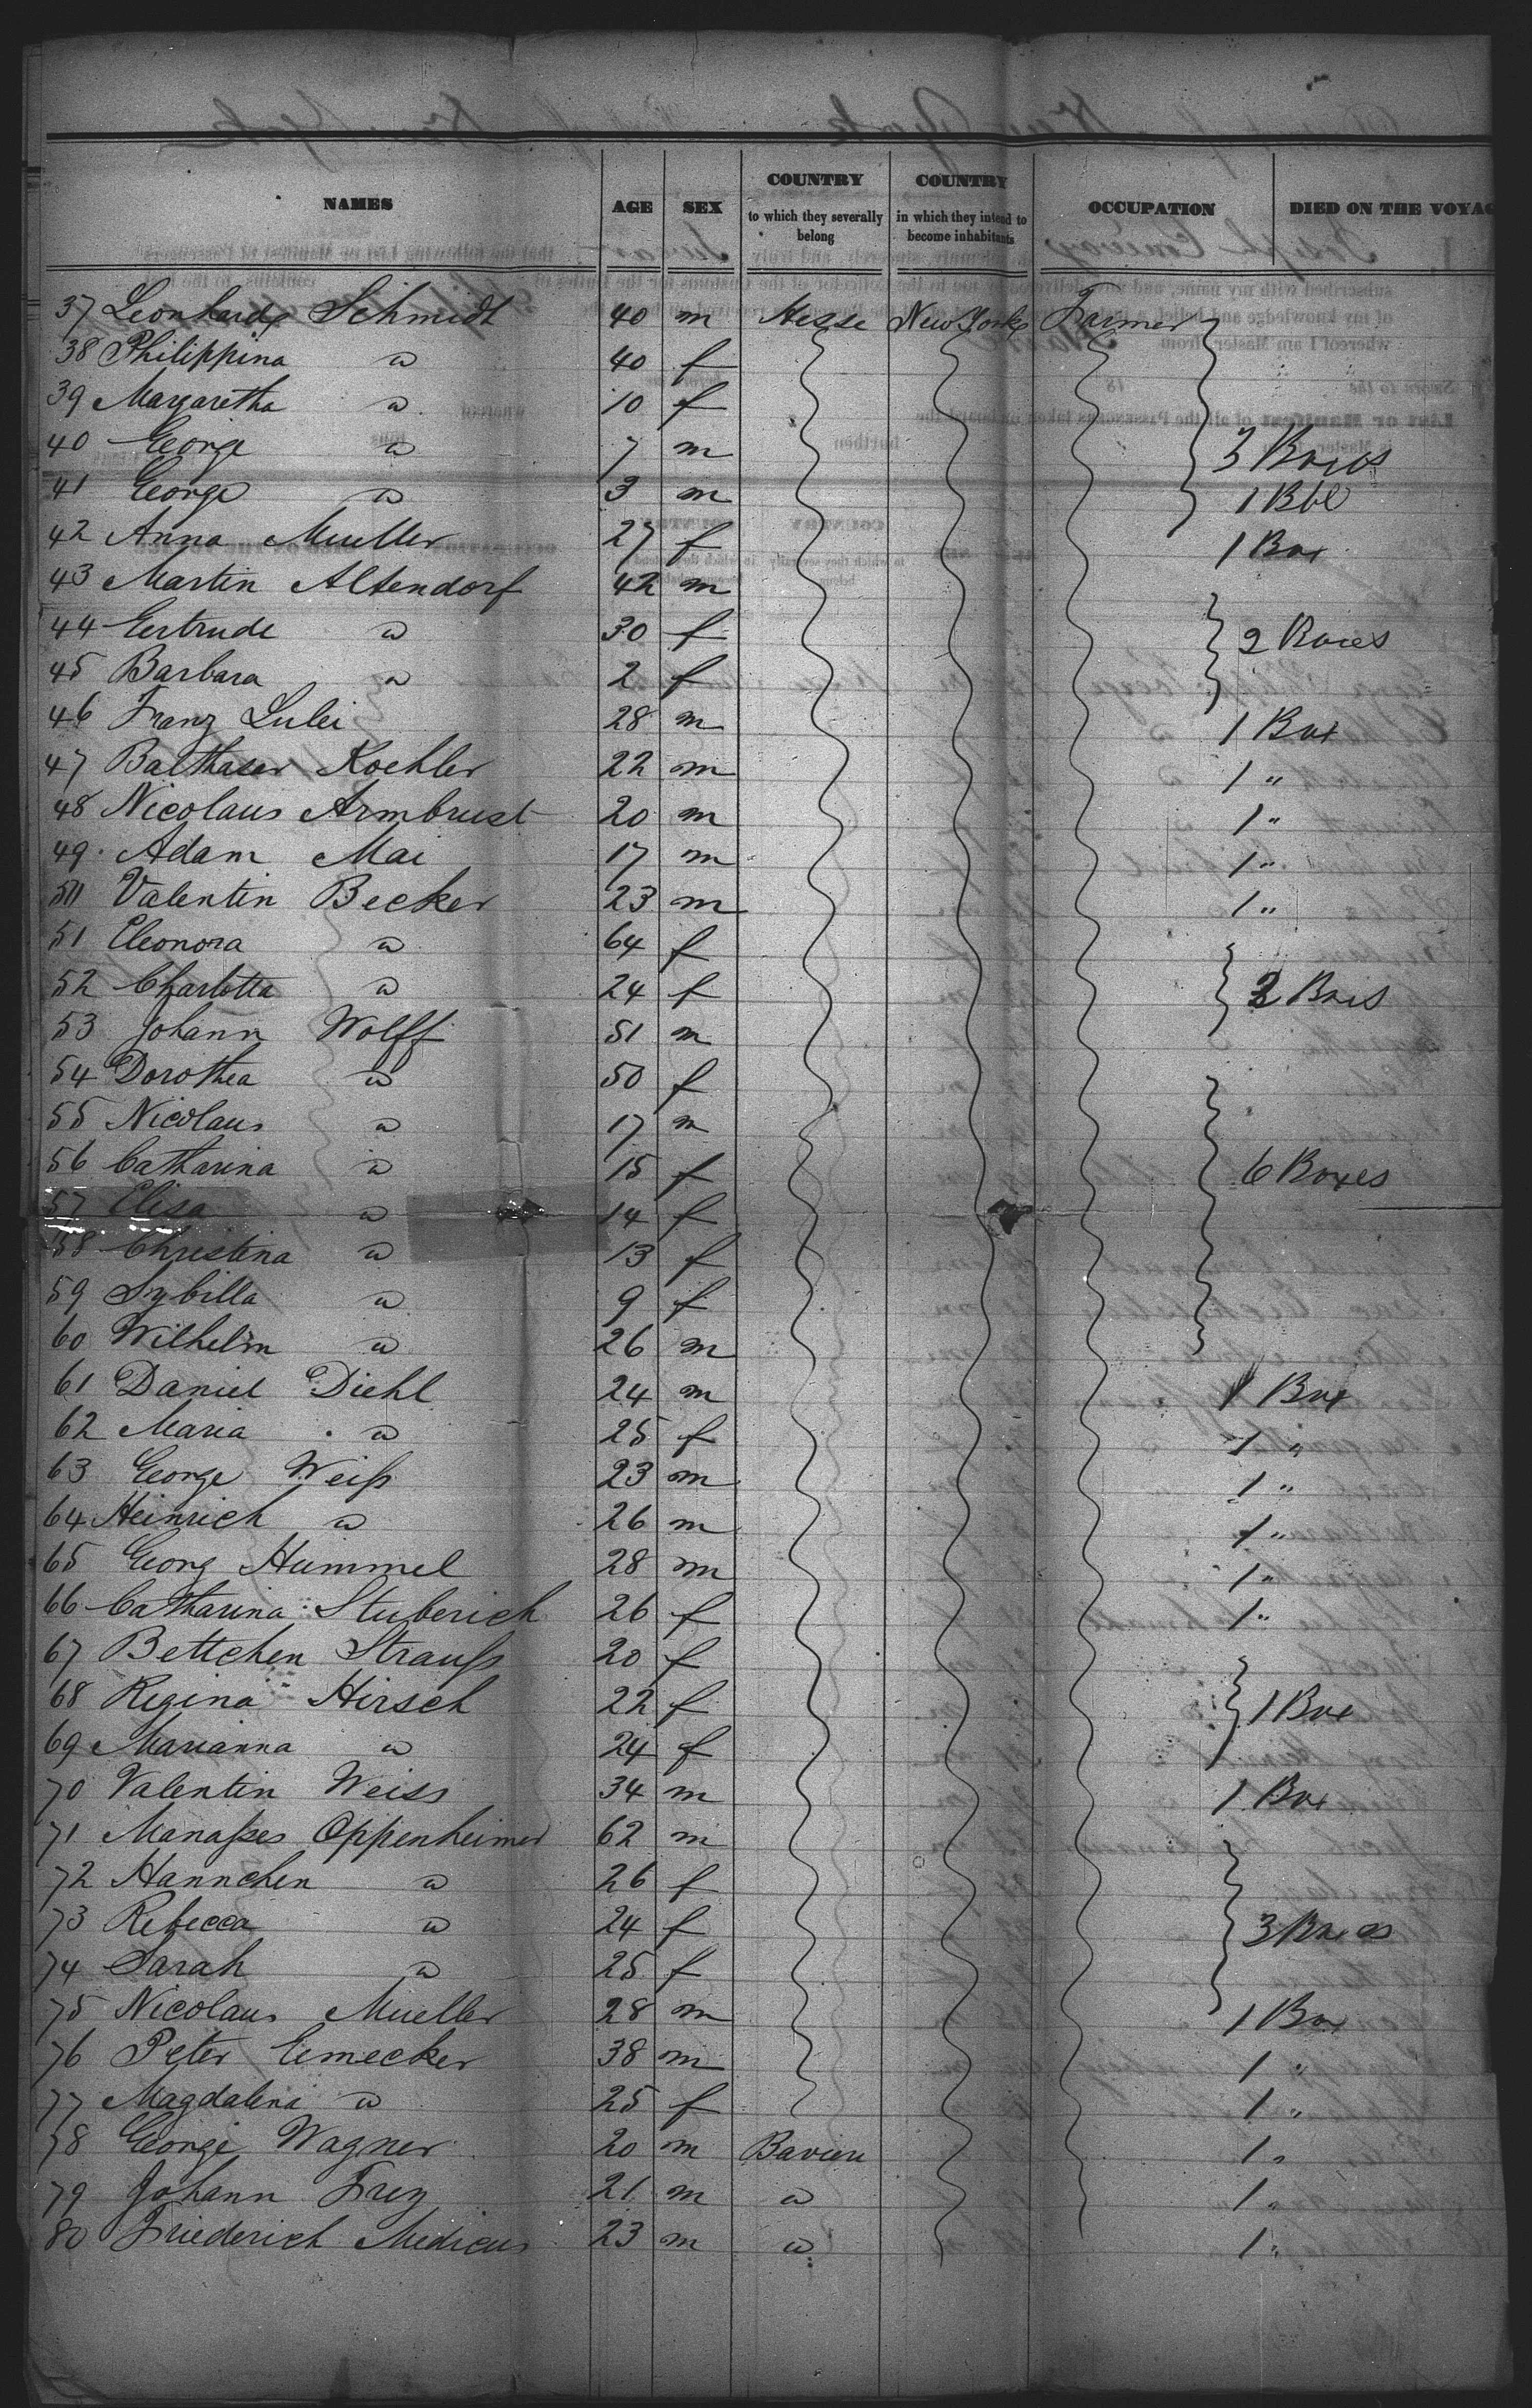 NAMES AGE SEX COUNTRY to which they severally belong COUNTRY in which they intend to become inhabitants OCCUPATION DIED ON THE VOYAG
37 Leonhard Schmidt 40 m Hesse New York Farmer
38 Philippina " 40 f
39 Margaretha " 10 f
40 George " 7 m 3 Boxes
41 George " 3 m 1 Bbl
42 Anna Mueller 27 f 1 Box
43 Martin Altendorf 42 m
44 Gertrude " 30 f 2 Boxes
45 Barbara " 2 f
46 Franz Lulei 28 m 1 Box
47 Balthaser Koehler 22 m 1 "
48 Nicolaus Armbrust 20 m 1 "
49 Adam Mai 17 m 1 "
50 Valentin Becker 23 m 1 "
51 Eleonora " 64 f
52 Charlotta " 24 f 2 Boxes
53 Johann Wolff 51 m
54 Dorothea " 50 f
55 Nicolaus " 17 m
56 Catharina " 15 f 6 Boxes
57 Elisa " 14 f
58 Christina " 13 f
59 Sybilla " 9 f
60 Wilhelm " 26 m
61 Daniel Diehl 24 m 1 Box
62 Maria " 25 f 1 "
63 George Weiß 23 m 1 "
64 Heinrich " 26 m 1 "
65 Georg Hummel 28 m 1 "
66 Catharina Stuberich 26 f 1 "
67 Bettchen Strauß 20 f
68 Regina Hirsch 22 f 1 Box
69 Marianna " 24 f
70 Valentin Weiss 34 m 1 Box
71 Manaßes Oppenheimer 62 m
72 Hannchen " 26 f
73 Rebecca " 24 f 3 Boxes
74 Sarah " 25 f
75 Nicolaus Mueller 28 m 1 Box
76 Peter Emecker 38 m 1 "
77 Magdalena " 25 f 1 "
78 George Wagner 20 m 1 "
79 Johann Frey 21 m " 1 "
80 Friederich Medicus 23 m " 1 "